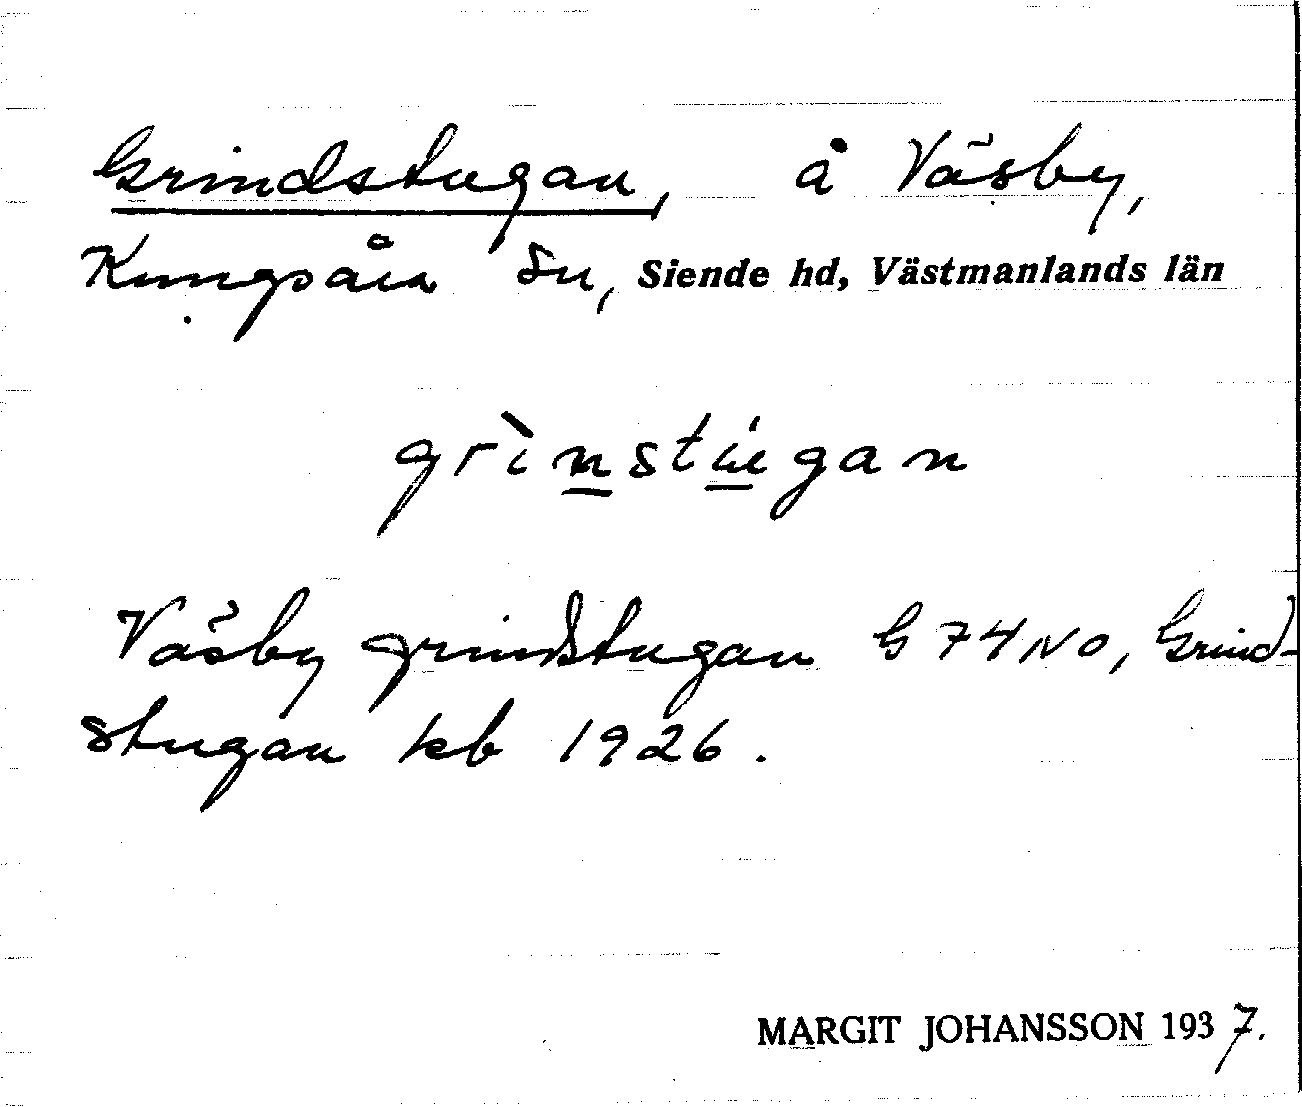 Grindstugan, å Väsby,
Kungsåra sn, Siende hd, Västmanlands län
grìnstúgan
Väsby grindstugan G 74 NO, Grind-
stugan kb 1926.
MARGIT JOHANSSON 1937.